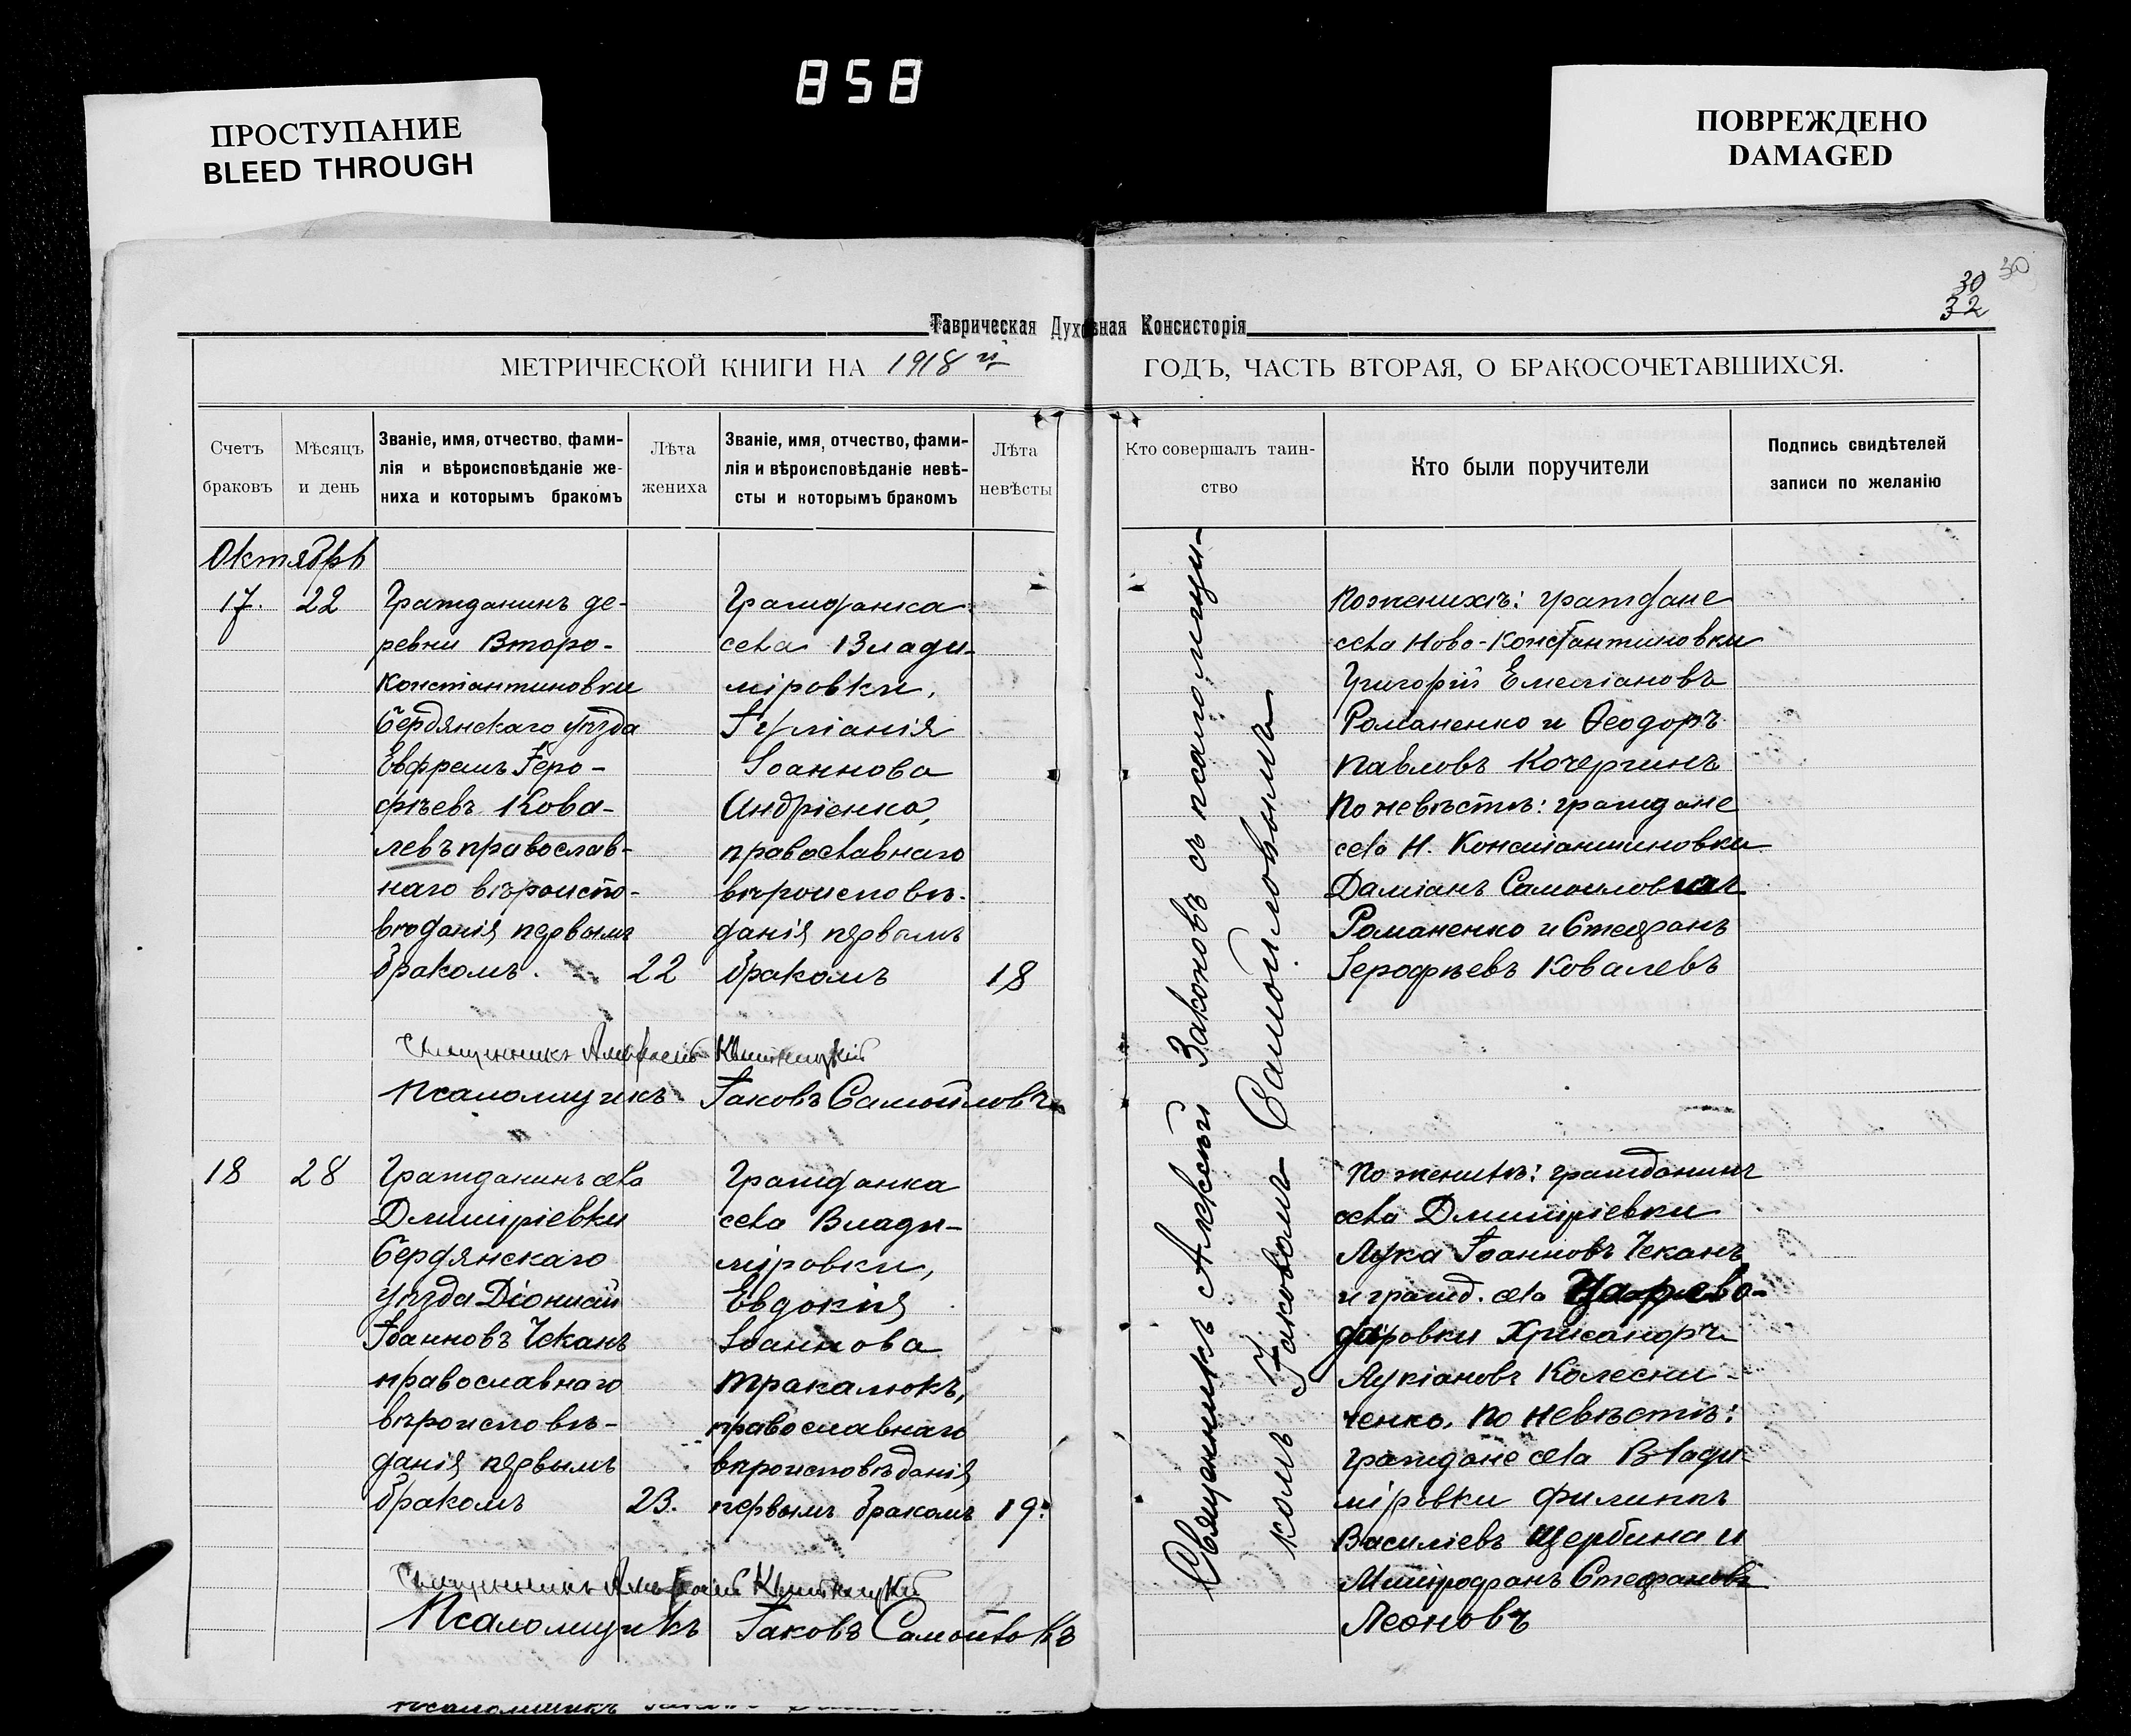 858
ПРОСТУПАНИЕ
BLEED THROUGH
ПОВРЕЖДЕНО
DAMAGED
30
30
32
Таврическая Духовная Консисторія
МЕТРИЧЕСКОЙ КНИГИ НА 1918 й
ГОДЪ, ЧАСТЬ ВТОРАЯ, О БРАКОСОЧЕТАВШИХСЯ.
Счетъ
браковъ
Мѣсяцъ
и день
Званіе, имя, отчество, фами-
лія и вѣроисповѣданіе же-
ниха и которымъ бракомъ
Лѣта
жениха
Званіе, имя, отчество, фами-
лія и вѣроисповѣданіе невѣ-
сты и которымъ бракомъ
Лѣта
невѣсты
Кто совершалъ таин-
ство
Кто были поручители
Подпись свидѣтелей
записи по желанію
Октябрь
17. 22
Гражданинъ де-
ревни Второ-
Константиновки
Бердянскаго уѣзда
Евфремъ Іеро-
фѣевъ Кова-
левъ православ-
наго вѣроиспо-
вѣданія первымъ
бракомъ. 22
Гражданка
села Влади-
міровки,
Іуліанія
Іоаннова
Андріенко,
православнаго
вѣроисповѣ-
данія первымъ
бракомъ 18
Священникъ Алексѣй
Псаломщикъ Іаковъ Самойловъ
Священникъ Алексѣй Законовъ съ псаломщи-
комъ Іаковомъ Самойловымъ
По женихѣ: граждане
села Ново-Константиновки
Григорій Емеліановъ
Романенко и Ѳеодоръ
Павловъ Кочергинъ
По невѣстѣ: граждане
села Н. Константиновки
Даміанъ Самоиловъ
Романенко и Стефанъ
Іерофѣевъ Ковалевъ
18 28
Гражданинъ села
Димитріевки
Бердянскаго
уѣзда Діонисій
Іоанновъ Чеканъ
православнаго
вѣроисповѣ-
данія первымъ
бракомъ 23.
Гражданка
села Влади-
міровки,
Евдокія
Іоаннова
Тракалюкъ,
православнаго
вѣроисповѣданія
первымъ бракомъ 19.
Священникъ Алексѣй
Псаломщикъ Іаковъ Самойловъ
По женихѣ: гражданинъ
села Димитріевки
Лука Іоанновъ Чеканъ
и гражд. села Царево-
даровки Хрисанфъ
Лукіановъ Колесни-
ченко. По невѣстѣ:
граждане села Влади-
міровки Филиппъ
Василіевъ Щербина и
Митрофанъ Стефановъ
Леоновъ
псаломщикъ